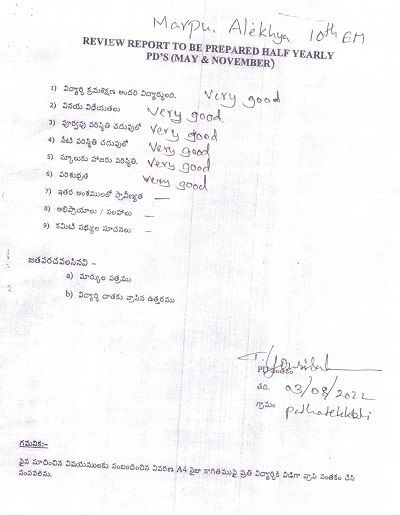 Marpu. Alekhya 10th EM
REVIEW REPORT TO BE PREPARED HALF YEARLY
PD'S (MAY & NOVEMBER)
1) విద్యార్థి క్రమశిక్షణ అందరి విద్యార్థులది. Very good
2) వినయ విధేయతలు Very good.
3) పూర్వపు పరిస్థితి చదువులో Very good
4) నేటి పరిస్థితి చదువులో Very good
5) స్కూలుకు హాజరు పరిస్థితి. Very good
6) పరిశుభ్రత Very good
7) ఇతర అంశములలో ప్రావీణ్యత —
8) అభిప్రాయాలు / సలహాలు —
9) కమిటీ సభ్యుల సూచనలు —
జతపరచవలసినవి –
a) మార్కుల పత్రము
b) విద్యార్థి దాతకు వ్రాసిన ఉత్తరము
PD సంతకం
తేది. 03/08/2022
గ్రామం
గమనిక:-
పైన సూచించిన విషయములకు సంబంధించిన వివరణ A4 సైజు కాగితముపై ప్రతి విద్యార్థికి విడిగా వ్రాసి సంతకం చేసి
పంపవలెను.